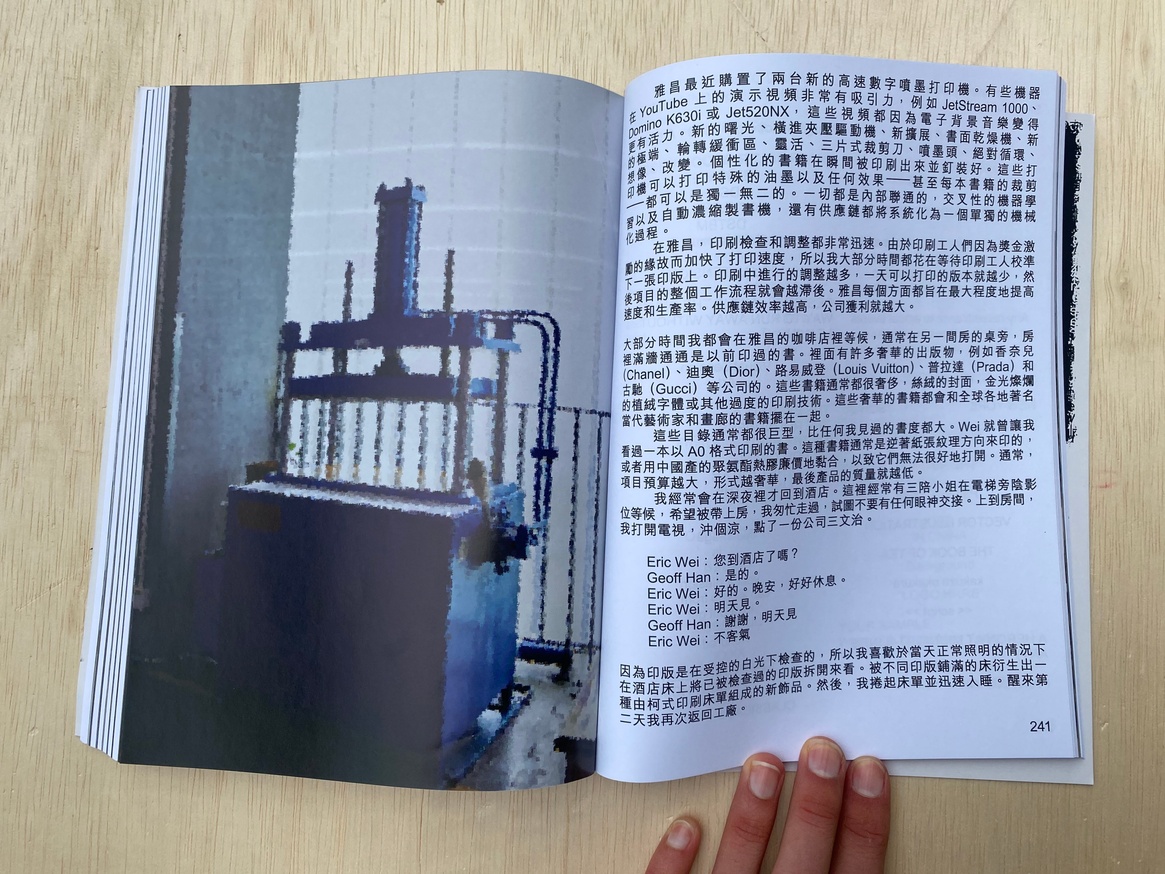 雅昌最近購置了兩台新的高速數字噴墨打印機。有些機器
在 YouTube 上的演示視頻非常有吸引力，例如 JetStream 1000、
Domino K630i 或 Jet520NX，這些視頻都因為電子背景音樂變得
更有活力。新的曙光、橫進夾壓驅動機、新擴展、書面乾燥機、新
的極端、輪轉緩衝區、靈活、三片式裁剪刀、噴墨頭、絕對循環、
想像、改變。個性化的書籍在瞬間被印刷出來並釘裝好。這些打
印機可以打印特殊的油墨以及任何效果——甚至每本書籍的裁剪
——都可以是獨一無二的。一切都是內部聯通的，交叉性的機器學
習以及自動濃縮製書機，還有供應鏈都將系統化為一個單獨的機械
化過程。
在雅昌，印刷檢查和調整都非常迅速。由於印刷工人們因為獎金激
勵的緣故而加快了打印速度，所以我大部分時間都花在等待印刷工人校準
下一張印版上。印刷中進行的調整越多，一天可以打印的版本就越少，然
後項目的整個工作流程就會越滯後。雅昌每個方面都旨在最大程度地提高
速度和生產率。供應鏈效率越高，公司獲利就越大。
大部分時間我都會在雅昌的咖啡店裡等候，通常在另一間房的桌旁，房
裡滿牆通通是以前印過的書。裡面有許多奢華的出版物，例如香奈兒
（Chanel）、迪奧（Dior）、路易威登（Louis Vuitton）、普拉達（Prada）和
古馳（Gucci）等公司的。這些書籍通常都很奢侈，絲絨的封面，金光燦爛
的植絨字體或其他過度的印刷技術。這些奢華的書籍都會和全球各地著名
當代藝術家和畫廊的書籍擺在一起。
這些目錄通常都很巨型，比任何我見過的書度都大。Wei 就曾讓我
看過一本以 A0 格式印刷的書。這種書籍通常是逆著紙張紋理方向來印的，
或者用中國產的聚氨酯熱膠廉價地黏合，以致它們無法很好地打開。通常，
項目預算越大，形式越奢華，最後產品的質量就越低。
我經常會在深夜裡才回到酒店。這裡經常有三陪小姐在電梯旁陰影
位等候，希望被帶上房，我匆忙走過，試圖不要有任何眼神交接。上到房間，
我打開電視，沖個涼，點了一份公司三文治。
Eric Wei：您到酒店了嗎？
Geoff Han：是的。
Eric Wei：好的。晚安，好好休息。
Eric Wei：明天見。
Geoff Han：謝謝，明天見
Eric Wei：不客氣
因為印版是在受控的白光下檢查的，所以我喜歡於當天正常照明的情況下
在酒店床上將已被檢查過的印版拆開來看。被不同印版鋪滿的床衍生出一
種由柯式印刷床單組成的新飾品。然後，我捲起床單並迅速入睡。醒來第
二天我再次返回工廠。
241